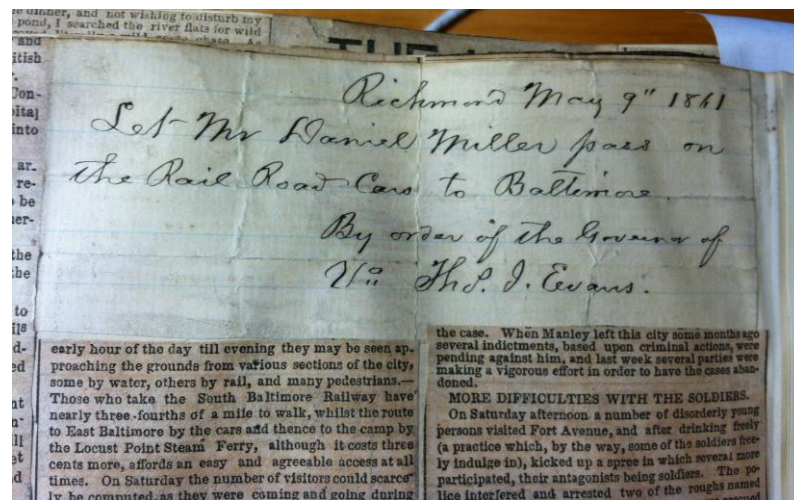 dinner, and not wishing to disturb my
pond, I searched the river flats for wild
and
itish
Con-
pital
into
ar-
re-
be
her-
the
the
to
ils
d-
ed
Richmond May 9" 1861
Let Mr Daniel Miller pass on
the Rail Road Cars to Baltimore.
By order of the Governor of
Va ThS. J. Evans.
early hour of the day till evening they may be seen ap-
proaching the grounds from various sections of the city,
some by water, others by rail, and many pedestrians.—
Those who take the South Baltimore Railway have
nearly three-fourths of a mile to walk, whilst the route
to East Baltimore by the cars and thence to the camp by
the Locust Point Steam Ferry, although it costs three
cents more, affords an easy and agreeable access at all
times. On Saturday the number of visitors could scarce-
ly be computed, as they were coming and going during
the case. When Manley left this city some months ago
several indictments, based upon criminal actions, were
pending against him, and last week several parties were
making a vigorous effort in order to have the cases aban-
doned.
MORE DIFFICULTIES WITH THE SOLDIERS.
On Saturday afternoon a number of disorderly young
persons visited Fort Avenue, and after drinking freely
(a practice which, by the way, some of the soldiers free-
ly indulge in), kicked up a spree in which several more
participated, their antagonists being soldiers. The po-
lice interfered and arrested two of the roughs named